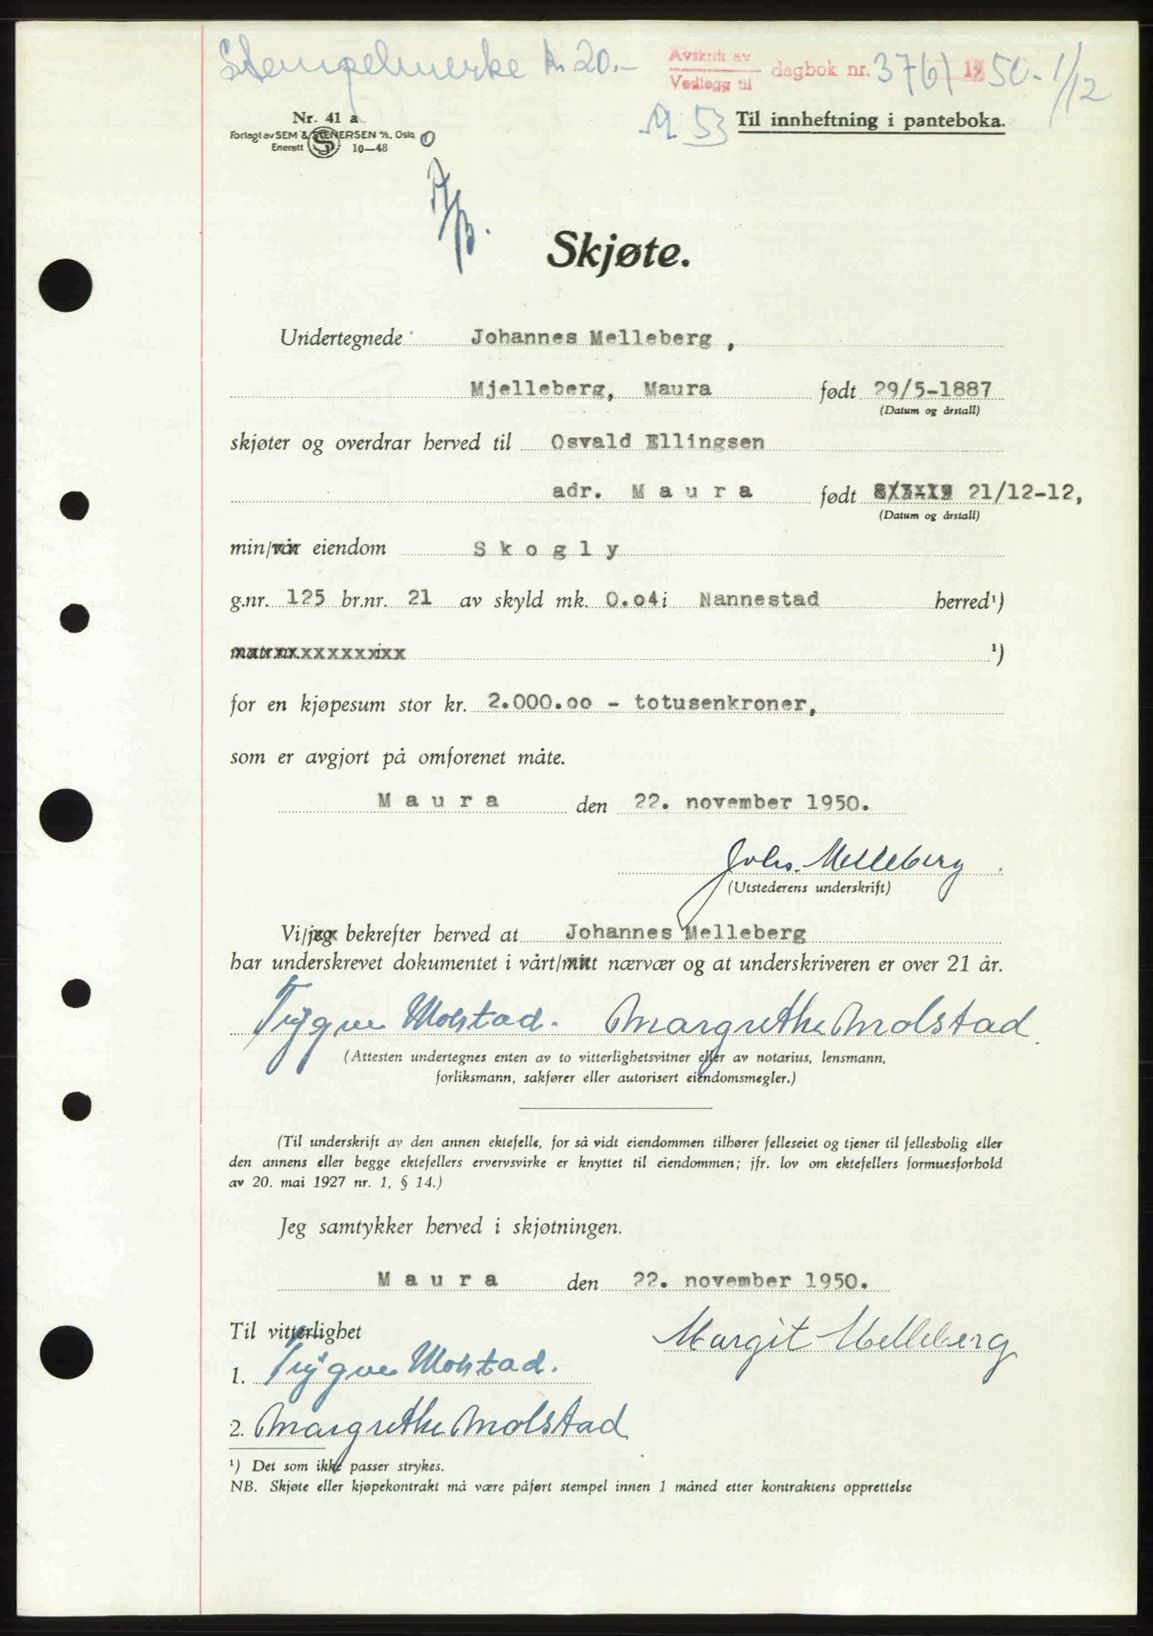 Stempelmerke kr 20.-
Avskrift av
Vedlegg til dagbok nr. 3761 1950-1/12
Nr. 41 a
Forlagt av SEM & STENERSEN A/S, Oslo
Enerett 10—48
M 53
Til innheftning i panteboka.
Skjøte.
Undertegnede Johannes Melleberg ,
Mjelleberg, Maura født 29/5-1887
(Datum og årstall)
skjøter og overdrar herved til Osvald Ellingsen
adr. M a u r a født 21/12-12,
(Datum og årstall)
min/vår eiendom S k o g l y
g.nr. 125 br.nr. 21 av skyld mk. 0.o4 i Nannestad herred¹)
matr.nr.xxxxxxxxixx ¹)
for en kjøpesum stor kr. 2.000.oo - totusenkroner,
som er avgjort på omforenet måte.
M a u r a den 22. november 1950.
Johs. Melleberg
(Utstederens underskrift)
Vi/jeg bekrefter herved at Johannes Melleberg
har underskrevet dokumentet i vårt/mitt nærvær og at underskriveren er over 21 år.
Trygve Molstad. Margrethe Molstad
(Attesten undertegnes enten av to vitterlighetsvitner eller av notarius, lensmann,
forliksmann, sakfører eller autorisert eiendomsmegler.)
(Til underskrift av den annen ektefelle, for så vidt eiendommen tilhører felleseiet og tjener til fellesbolig eller
den annens eller begge ektefellers ervervsvirke er knyttet til eiendommen; jfr. lov om ektefellers formuesforhold
av 20. mai 1927 nr. 1, § 14.)
Jeg samtykker herved i skjøtningen.
M a u r a den 22. november 1950.
Til vitterlighet
Margit Melleberg
1. Trygve Molstad.
2. Margrethe Molstad
¹) Det som ikke passer strykes.
NB. Skjøte eller kjøpekontrakt må være påført stempel innen 1 måned etter kontraktens opprettelse